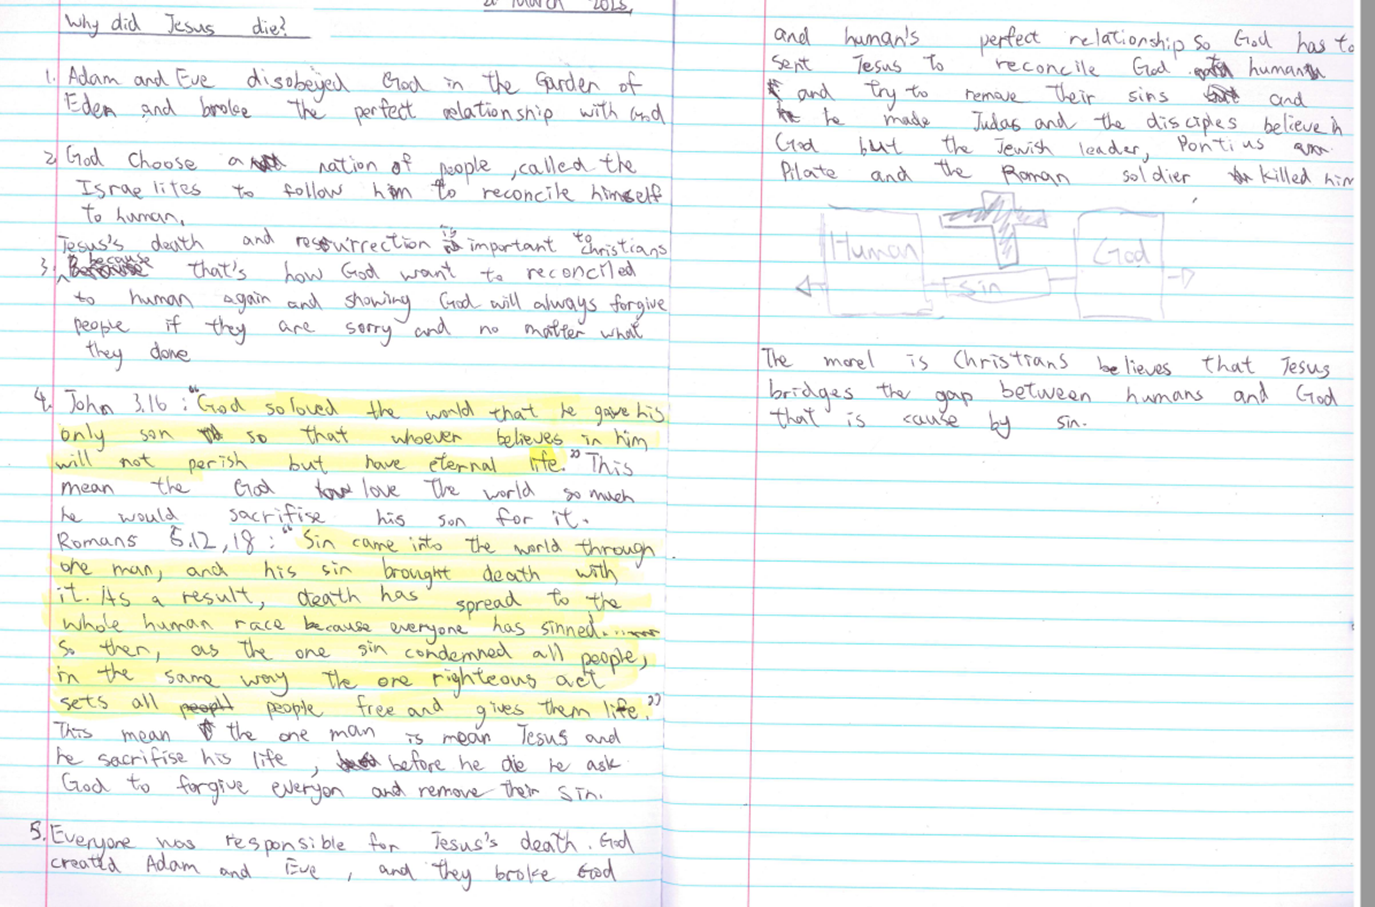 March 2015
Why did Jesus die?
1. Adam and Eve disobeyed God in the Garden of
Eden and broke the perfect relationship with God
2 God choose a nation of people, called the
Israelites to follow him to reconcile himself
to human.
Jesus's death and resourrection is important to Christians
3. because that's how God want to reconciled
to human again and showing God will always forgive
people if they are sorry and no matter what
they done
4. John 3.16 : "God so loved the world that he gave his
only son so that whoever believes in him,
will not perish but have eternal life." This
mean the God love the world so much
he would sacrifise his son for it.
Romans 5.12, 18 : "Sin came into the world through
one man, and his sin brought death with
it. As a result, death has spread to the
whole human race because everyone has sinned......
So then, as the one sin condemned all people,
in the same way the one righteous act
sets all people free and gives them life."
This mean the one man is mean Jesus and
he sacrifise his life, before he die he ask
God to forgive everyon and remove their sin.
5. Everyone was responsible for Jesus's death. God
created Adam and Eve, and they broke God
and human's perfect relationship so God has to
sent Jesus to reconcile God human
and try to remove their sins and
he made Judas and the disciples believe in
God but the Jewish leader, Pontius
Pilate and the Roman soldier killed him
Human
God
Sin
The morel is Christians believes that Jesus
bridges the gap between humans and God
that is cause by sin.